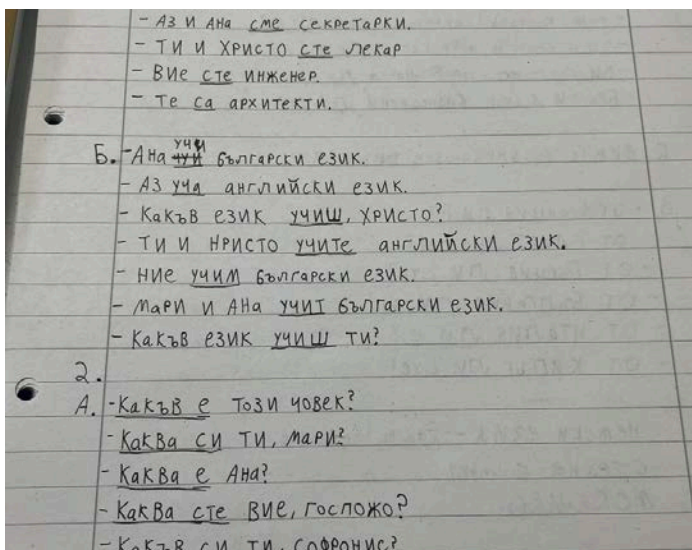 - Аз и Ана сме секретарки.
- Ти и Христо сте лекар
- Вие сте инженер.
- Те са архитекти.
Б. - Ана учи български език.
- Аз уча английски език.
- Какъв език учиш, Христо?
- Ти и Нристо учите английски език.
- Ние учим български език.
- Мари и Ана учит български език.
- Какъв език учиш ти?
2.
А. - Какъв е този човек?
- Каква си ти, Мари?
- Каква е Ана?
- Каква сте Вие, госпожо?
- Какъв си ти, Софронис?